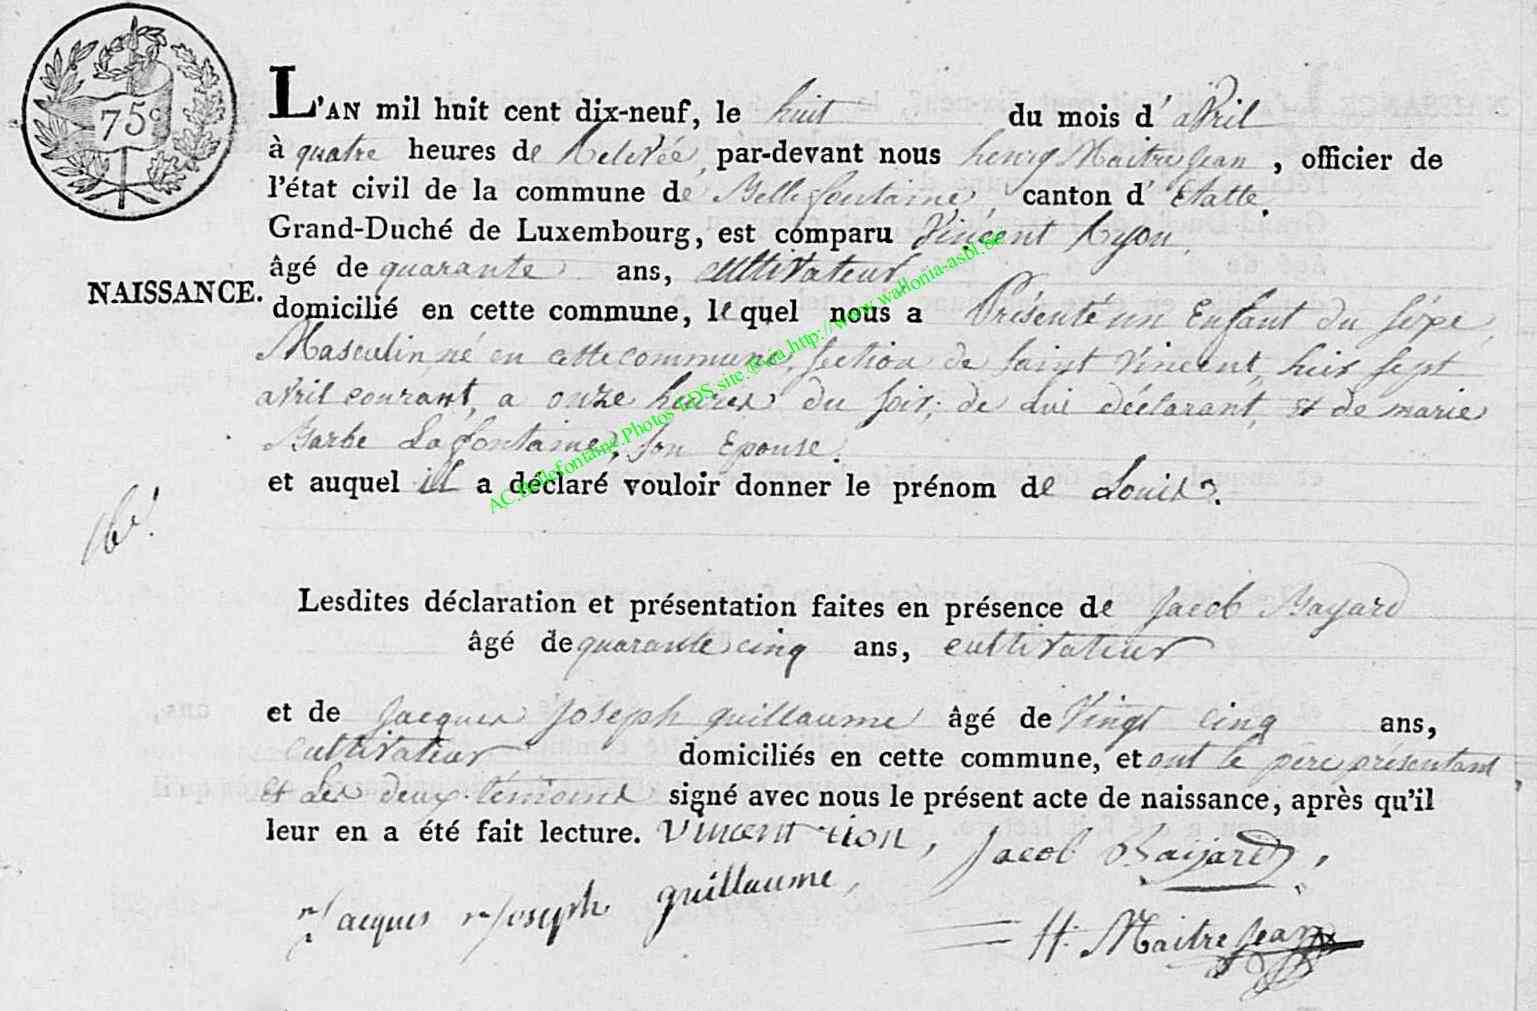 75c
L'AN mil huit cent dix-neuf, le huit du mois d' avril
à quatre heures de Relevée, par-devant nous henry Maitrejean, officier de
l'état civil de la commune de Bellefontaine, canton d' Etalle.
Grand-Duché de Luxembourg, est comparu Vincent Ryon,
âgé de quarante ans, cultivateur
NAISSANCE.
domicilié en cette commune, lequel nous a Présenté un Enfant du sexe
Masculin, né en cette commune, section de saint Vincent, hier sept
avril courant, a onze heures du soir; de lui déclarant, et de marie
Barbe Lafontaine, son Epouse.
et auquel il a déclaré vouloir donner le prénom de Louis.
Lesdites déclaration et présentation faites en présence de Jacob Bayard
âgé de quarante cinq ans, cultivateur
et de Jacques Joseph guillaume âgé de Vingt cinq ans,
cultivateur domiciliés en cette commune, et ont le père présentant
et Les deux témoins signé avec nous le présent acte de naissance, après qu'il
leur en a été fait lecture. Vincent rion, Jacob Baijard,
Jacques Joseph guillaume,
H. Maitrejean
AC.Bellefontaine.Photos LDS site.@via.http://www.wallonia-asbl.be